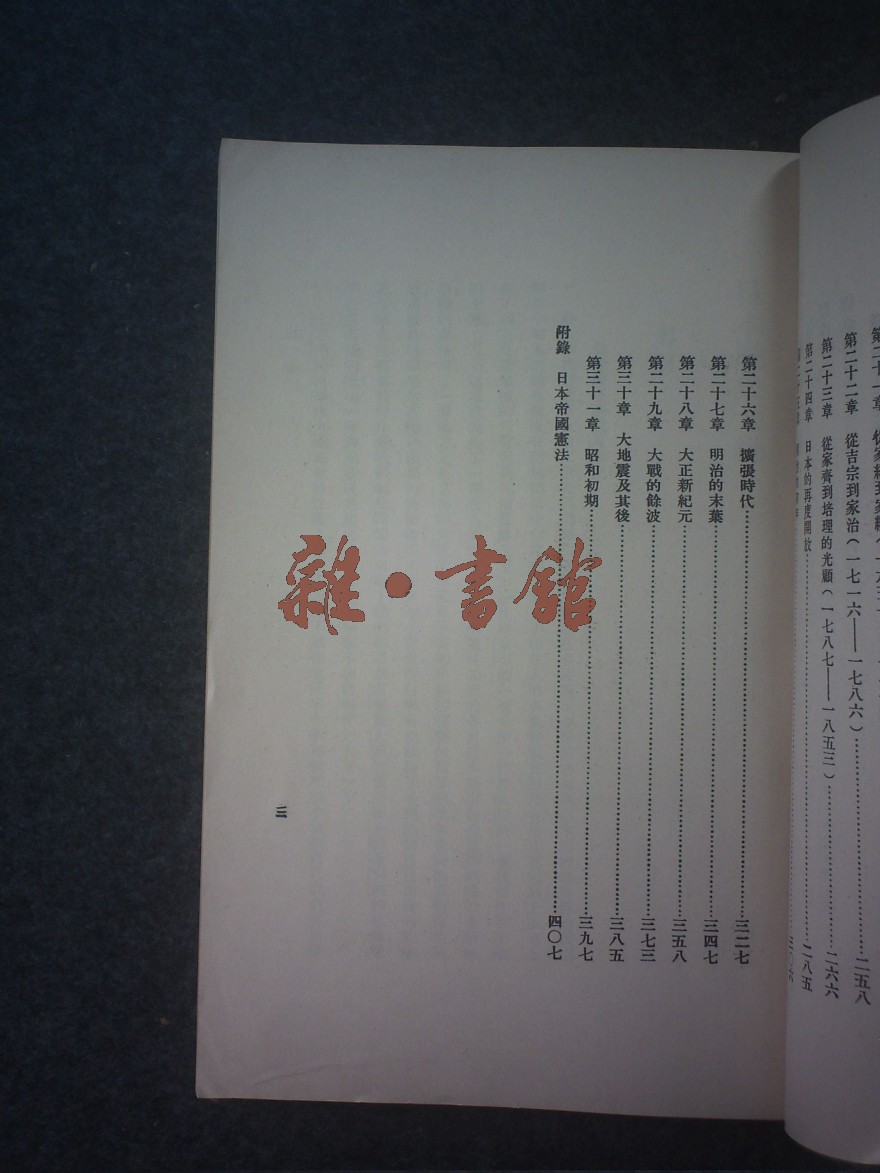 第二十二章　從吉宗到家治（一七一六——一七八六）……二五八
第二十三章　從家齊到培理的光顧（一七八七——一八五三）……二六六
第二十四章　日本的再度開放……二八五
第二十六章　擴張時代……三二七
第二十七章　明治的末葉……三四七
第二十八章　大正新紀元……三五八
第二十九章　大戰的餘波……三七三
第三十章　大地震及其後……三八五
第三十一章　昭和初期……三九七
附錄　日本帝國憲法……四〇七
三
雜·書館